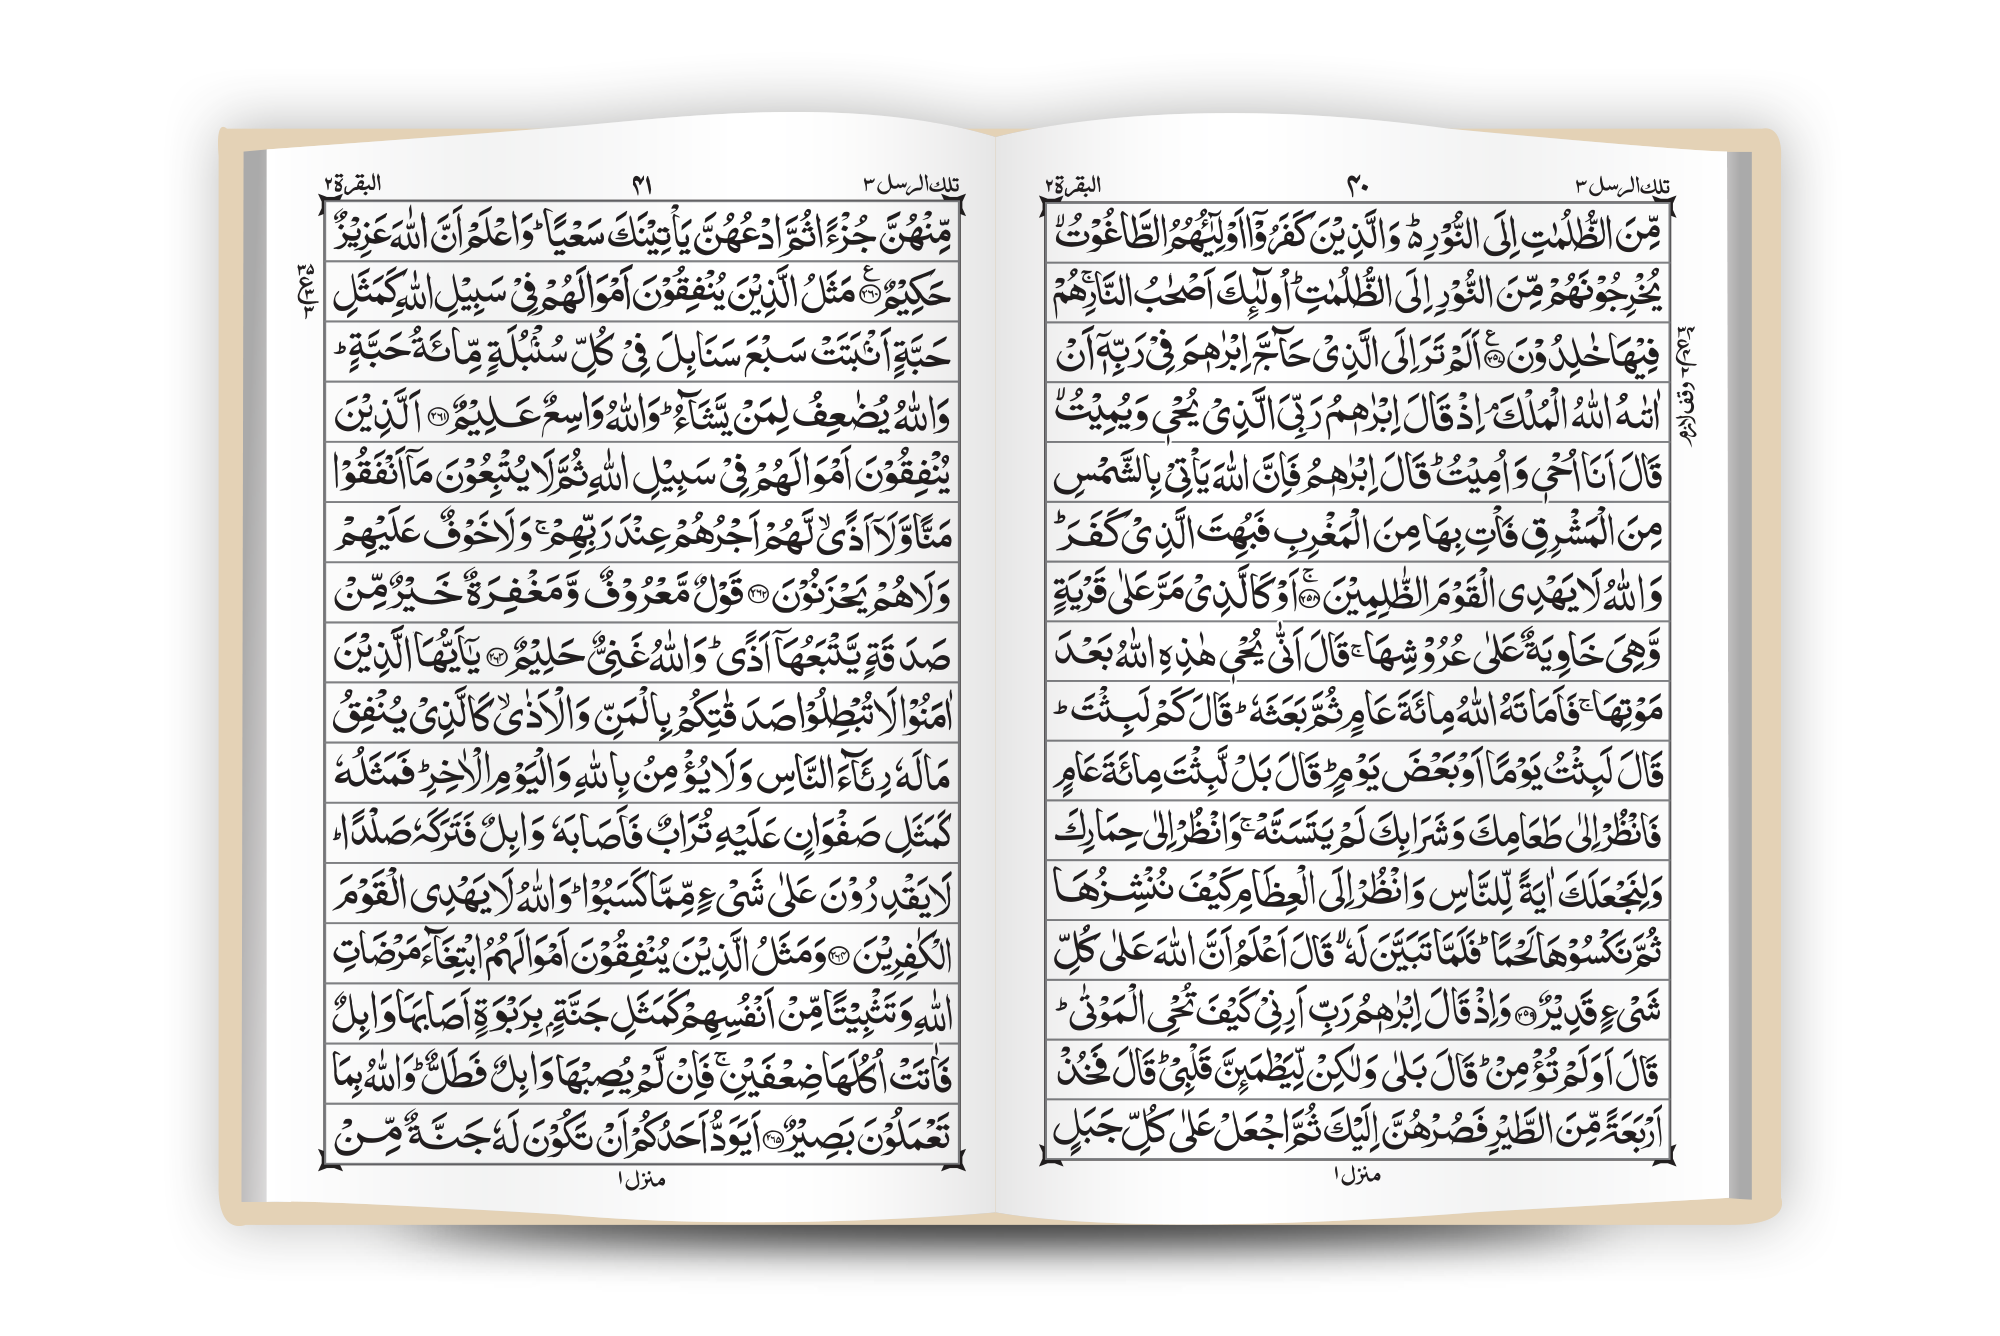 تلك الرسل ٣
۴۰
البقرة ٢
مِّنَ الظُّلُمٰتِ اِلَى النُّوْرِ۬ؕ وَالَّذِيْنَ كَفَرُوْۤا اَوْلِيٰٓـُٔهُمُ الطَّاغُوْتُۙ
يُخْرِجُوْنَهُمْ مِّنَ النُّوْرِ اِلَى الظُّلُمٰتِؕ اُولٰٓئِكَ اَصْحٰبُ النَّارِۚ هُمْ
فِيْهَا خٰلِدُوْنَ ﴿۲۵۷﴾ۧ اَلَمْ تَرَ اِلَى الَّذِىْ حَآجَّ اِبْرٰهٖمَ فِىْ رَبِّهٖۤ اَنْ
اٰتٰٮهُ اللّٰهُ الْمُلْكَۘ اِذْ قَالَ اِبْرٰهٖمُ رَبِّىَ الَّذِىْ يُحْىٖ وَيُمِيْتُۙ
قَالَ اَنَا اُحْىٖ وَاُمِيْتُؕ قَالَ اِبْرٰهٖمُ فَاِنَّ اللّٰهَ يَاْتِىْ بِالشَّمْسِ
مِنَ الْمَشْرِقِ فَاْتِ بِهَا مِنَ الْمَغْرِبِ فَبُهِتَ الَّذِىْ كَفَرَؕ
وَاللّٰهُ لَا يَهْدِى الْقَوْمَ الظّٰلِمِيْنَۚ ﴿۲۵۸﴾ اَوْ كَالَّذِىْ مَرَّ عَلٰى قَرْيَةٍ
وَّهِىَ خَاوِيَةٌ عَلٰى عُرُوْشِهَاۚ قَالَ اَنّٰى يُحْىٖ هٰذِهِ اللّٰهُ بَعْدَ
مَوْتِهَاۚ فَاَمَاتَهُ اللّٰهُ مِائَةَ عَامٍ ثُمَّ بَعَثَهٗؕ قَالَ كَمْ لَبِثْتَؕ
قَالَ لَبِثْتُ يَوْمًا اَوْ بَعْضَ يَوْمٍؕ قَالَ بَلْ لَّبِثْتَ مِائَةَ عَامٍ
فَانْظُرْ اِلٰى طَعَامِكَ وَشَرَابِكَ لَمْ يَتَسَنَّهْۚ وَانْظُرْ اِلٰى حِمَارِكَ
وَلِنَجْعَلَكَ اٰيَةً لِّلنَّاسِ وَانْظُرْ اِلَى الْعِظَامِ كَيْفَ نُنْشِزُهَا
ثُمَّ نَكْسُوْهَا لَحْمًاؕ فَلَمَّا تَبَيَّنَ لَهٗۙ قَالَ اَعْلَمُ اَنَّ اللّٰهَ عَلٰى كُلِّ
شَىْءٍ قَدِيْرٌ ﴿۲۵۹﴾ وَاِذْ قَالَ اِبْرٰهٖمُ رَبِّ اَرِنِىْ كَيْفَ تُحْىِ الْمَوْتٰىؕ
قَالَ اَوَلَمْ تُؤْمِنْؕ قَالَ بَلٰى وَلٰكِنْ لِّيَطْمَئِنَّ قَلْبِىْؕ قَالَ فَخُذْ
اَرْبَعَةً مِّنَ الطَّيْرِ فَصُرْهُنَّ اِلَيْكَ ثُمَّ اجْعَلْ عَلٰى كُلِّ جَبَلٍ
وقف لازم
منزل ١
تلك الرسل ٣
۴۱
البقرة ٢
مِّنْهُنَّ جُزْءًا ثُمَّ ادْعُهُنَّ يَاْتِيْنَكَ سَعْيًاؕ وَاعْلَمْ اَنَّ اللّٰهَ عَزِيْزٌ
حَكِيْمٌ ﴿۲۶۰﴾ۧ مَثَلُ الَّذِيْنَ يُنْفِقُوْنَ اَمْوَالَهُمْ فِىْ سَبِيْلِ اللّٰهِ كَمَثَلِ
حَبَّةٍ اَنْۢبَتَتْ سَبْعَ سَنَابِلَ فِىْ كُلِّ سُنْۢبُلَةٍ مِّائَةُ حَبَّةٍؕ
وَاللّٰهُ يُضٰعِفُ لِمَنْ يَّشَآءُؕ وَاللّٰهُ وَاسِعٌ عَلِيْمٌ ﴿۲۶۱﴾ اَلَّذِيْنَ
يُنْفِقُوْنَ اَمْوَالَهُمْ فِىْ سَبِيْلِ اللّٰهِ ثُمَّ لَا يُتْبِعُوْنَ مَآ اَنْفَقُوْا
مَنًّا وَّلَآ اَذًىۙ لَّهُمْ اَجْرُهُمْ عِنْدَ رَبِّهِمْۚ وَلَا خَوْفٌ عَلَيْهِمْ
وَلَا هُمْ يَحْزَنُوْنَ ﴿۲۶۲﴾ قَوْلٌ مَّعْرُوْفٌ وَّمَغْفِرَةٌ خَيْرٌ مِّنْ
صَدَقَةٍ يَّتْبَعُهَاۤ اَذًىؕ وَاللّٰهُ غَنِىٌّ حَلِيْمٌ ﴿۲۶۳﴾ يٰۤاَيُّهَا الَّذِيْنَ
اٰمَنُوْا لَا تُبْطِلُوْا صَدَقٰتِكُمْ بِالْمَنِّ وَالْاَذٰىۙ كَالَّذِىْ يُنْفِقُ
مَالَهٗ رِئَآءَ النَّاسِ وَلَا يُؤْمِنُ بِاللّٰهِ وَالْيَوْمِ الْاٰخِرِؕ فَمَثَلُهٗ
كَمَثَلِ صَفْوَانٍ عَلَيْهِ تُرَابٌ فَاَصَابَهٗ وَابِلٌ فَتَرَكَهٗ صَلْدًاؕ
لَا يَقْدِرُوْنَ عَلٰى شَىْءٍ مِّمَّا كَسَبُوْاؕ وَاللّٰهُ لَا يَهْدِى الْقَوْمَ
الْكٰفِرِيْنَ ﴿۲۶۴﴾ وَمَثَلُ الَّذِيْنَ يُنْفِقُوْنَ اَمْوَالَهُمُ ابْتِغَآءَ مَرْضَاتِ
اللّٰهِ وَتَثْبِيْتًا مِّنْ اَنْفُسِهِمْ كَمَثَلِ جَنَّةٍۭ بِرَبْوَةٍ اَصَابَهَا وَابِلٌ
فَاٰتَتْ اُكُلَهَا ضِعْفَيْنِۚ فَاِنْ لَّمْ يُصِبْهَا وَابِلٌ فَطَلٌّؕ وَاللّٰهُ بِمَا
تَعْمَلُوْنَ بَصِيْرٌ ﴿۲۶۵﴾ اَيَوَدُّ اَحَدُكُمْ اَنْ تَكُوْنَ لَهٗ جَنَّةٌ مِّنْ
منزل ١